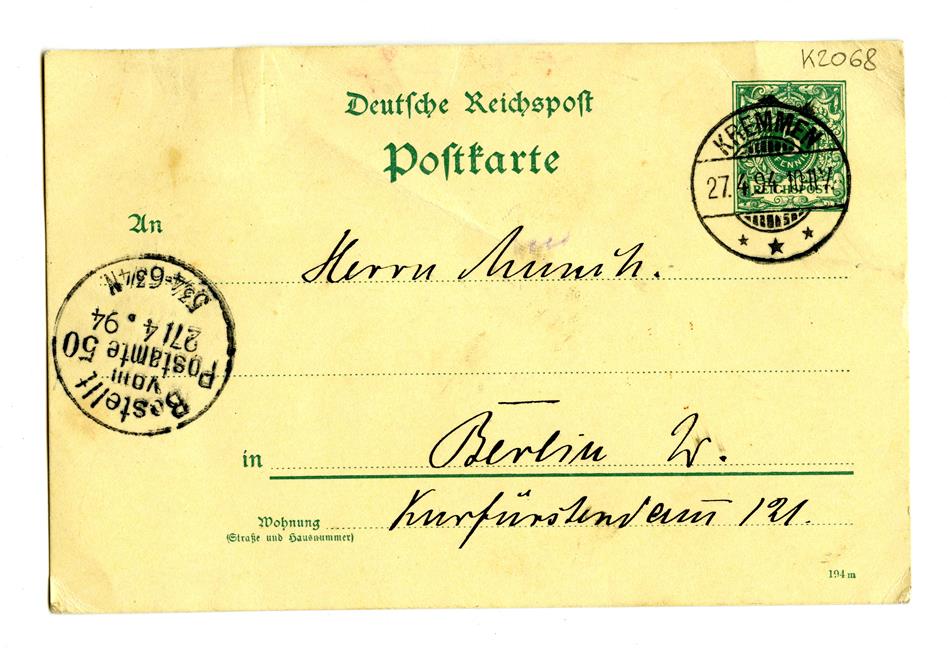 K2068
Deutsche Reichspost
Postkarte
PFENNIG
REICHSPOST
KREMMEN
27.4.94
An
Herrn Munch.
Bestellt
vom
Postamte 50
27/4.94
5¾-6¾N
in Berlin W.
Wohnung Kurfürstendam̅ 121.
(Straße und Hausnummer)
194m